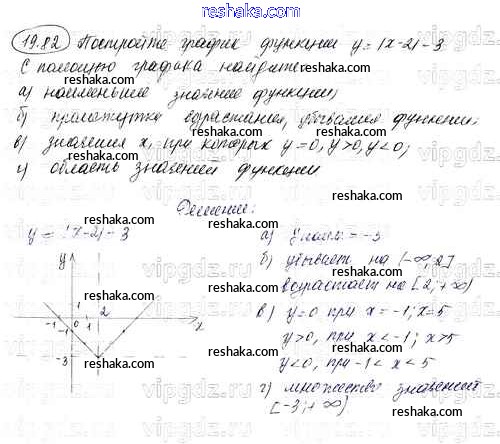 reshaka.com
19.82 Постройте график функции y = |x-2| - 3
С помощью графика найдите:
reshaka.com
а) наименьшее значение функции;
б) промежутки возрастания, убывания функции;
в) значения x, при которых y=0, y>0, y<0;
г) область значений функции
reshaka.com
Решение:
y = |x-2| - 3
а) yнаим = -3
reshaka.com
y
б) убывает на (-∞; 2]
возрастает на [2; +∞)
1
2
-1 0 1 x
-1
в) y=0 при x = -1; x=5
reshaka.com
y>0, при x < -1; x>5
-3
y<0, при -1 < x < 5
reshaka.com
г) множество значений
[-3; +∞)
reshaka.com
vipgdz.ru